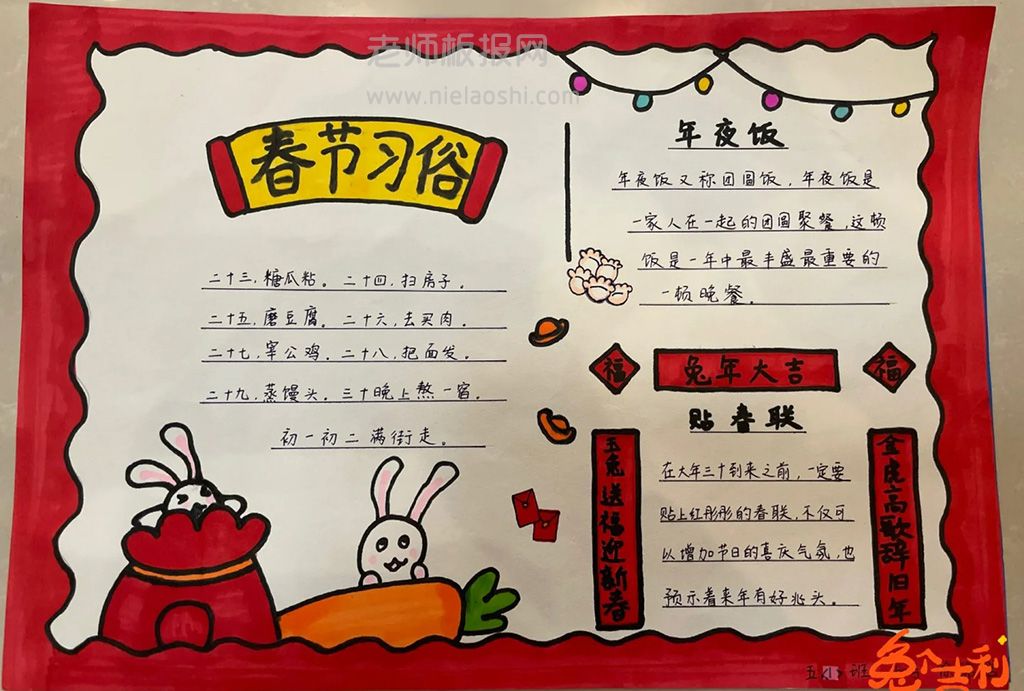 老师板报网
www.nielaoshi.com
春节习俗
二十三,糖瓜粘。二十四,扫房子。
二十五,磨豆腐。二十六,去买肉。
二十七,宰公鸡。二十八,把面发。
二十九,蒸馒头。三十晚上熬一宿。
初一初二满街走。
年夜饭
年夜饭又称团圆饭,年夜饭是
一家人在一起的团圆聚餐,这顿
饭是一年中最丰盛最重要的
一顿晚餐。
福
兔年大吉
福
贴春联
玉兔送福迎新春
在大年三十到来之前,一定要
贴上红彤彤的春联,不仅可
以增加节日的喜庆气氛,也
预示着来年有好兆头。
金虎高歌辞旧年
五 班
兔个士利